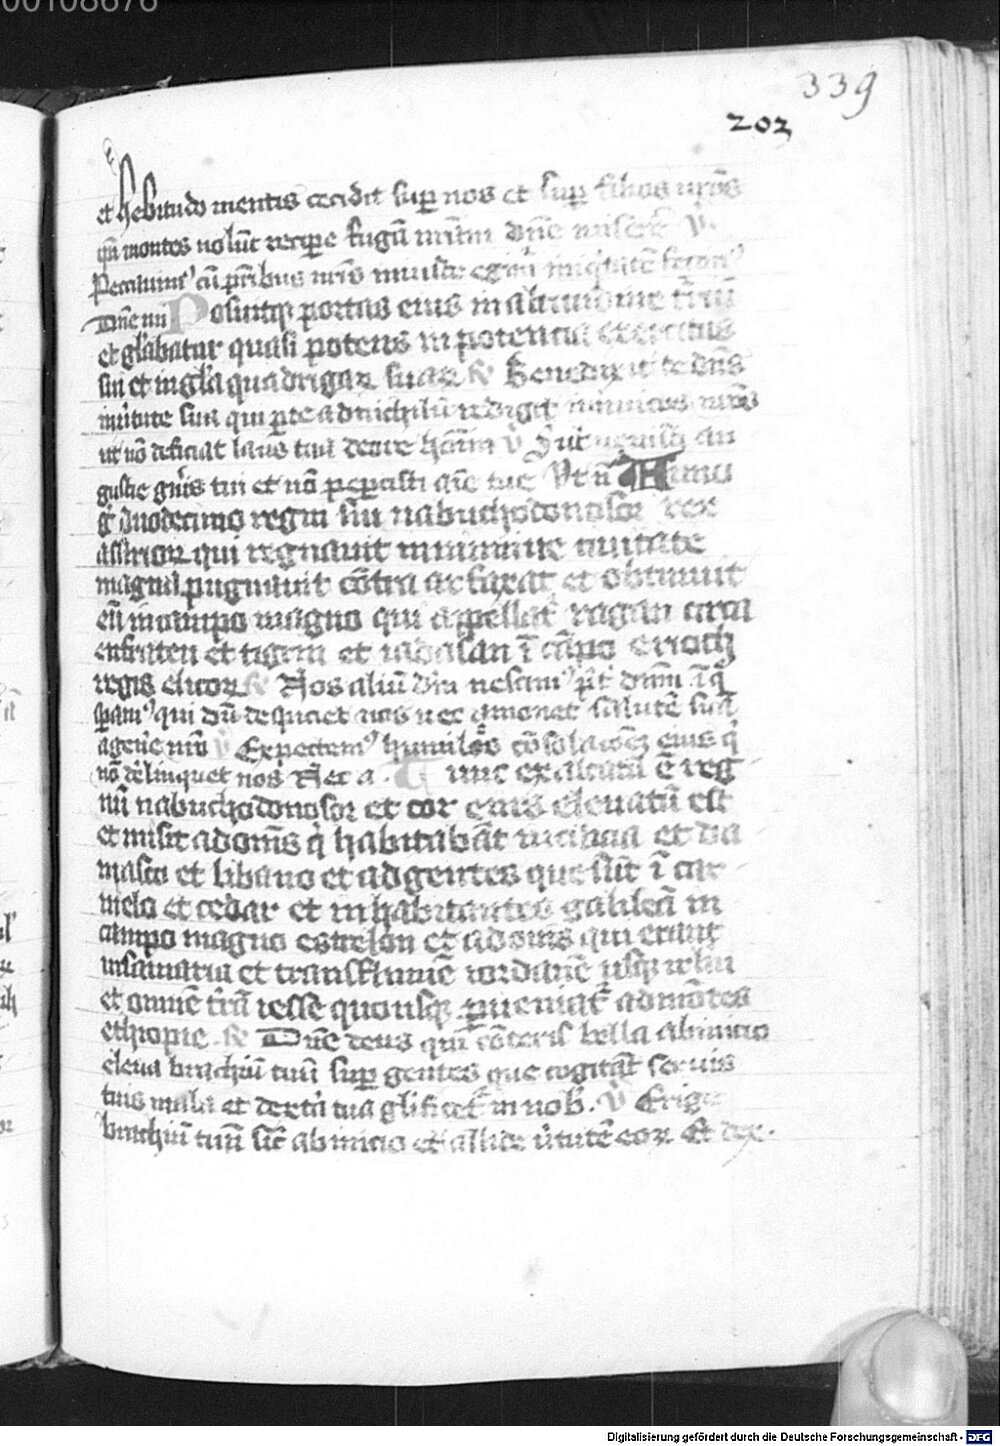 00108676
339
202
et hebitudo mentis cecidit sup nos et sup filios nr̄os
qn̄ montes nolūt recipe fugā nr̄am dn̄e misere V
Peccauimꝰ cū pr̄ibus nr̄is iniuste egimꝰ iniq̄tatē fecimꝰ
Dn̄e mi Posuitqꝫ portas eius in altitudine t̄riū
et gl̄abatur quasi potens in potencia exercitus
sui et in gl̄a quadrigaꝝ suaꝝ ꝶ Benedixit te dn̄s
in ūtute sua qui p te ad nichilū redigit inimicos nr̄os
ut nō deficiat laus tua de ore hoīm V
gustie gn̄is tui et nō pepercisti aīe tue Vt n̄ Anno
gͦ duodecimo regni sui nabuchodonosor rex
assirioꝝ qui regnauit in niniue ciuitate
magna pugnauit cōtra arfaxat et obtinuit
eū in campo magno qui appellat᷑ ragau circa
eufraten et tigrin et iadasan ī cāpo erioch
regis elicoꝝ ꝶ Nos aliū dm̄ nescimꝰ p̄t dnm̄ ī q
speramꝰ qui nō despiciet nos nec amouet salutē suā
a gen̄e nr̄o V Expectemꝰ humiles cōsolacōeꝫ eius q
nō delinquet nos Nec a Tunc exaltatū ē reg
nū nabuchodonosor et cor eius eleuatū est
et misit ad om̄s q̄ habitabāt in cilicia et da
masco et libano et ad gentes que sūt ī car
melo et cedar et inhabitantes galileā in
campo magno esrelon et ad om̄s qui erant
in samaria et trans flumē iordanē usqꝫ irlm̄
et omnē t̄rā iesse quousqꝫ pueniat᷑ ad mōtes
ethiopie ꝶ Dn̄e deus qui cōteris bella ab inicio
eleua brachiū tuū sup gentes que cogitāt seruis
tuis mala et dextra tua gl̄ificet᷑ in nob᷒ V Erige
brachiū tuū sic̄ ab inicio et allide ūtutē eoꝝ Et dex
Digitalisierung gefördert durch die Deutsche Forschungsgemeinschaft - DFG